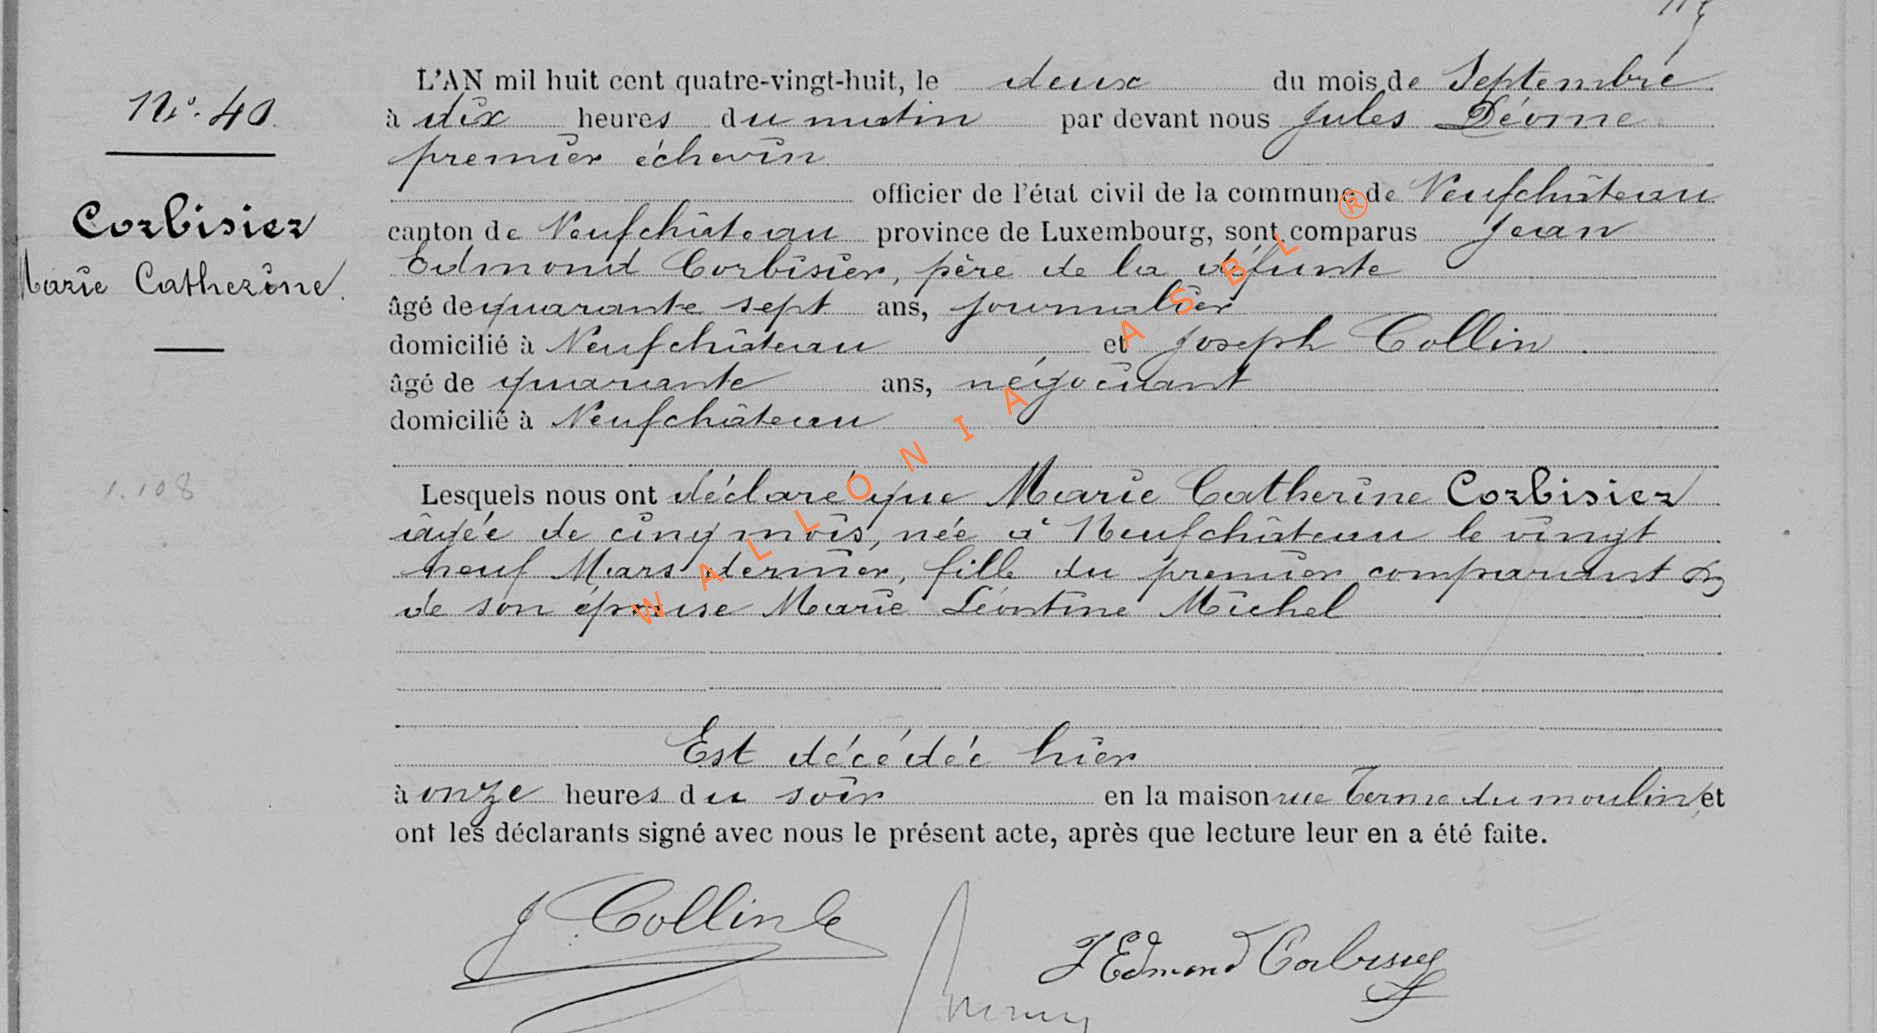 N°. 40
Corbisier
Marie Catherine.
1.108
L'AN mil huit cent quatre-vingt-huit, le deux du mois de Septembre
à dix heures du matin par devant nous Jules Déome
premier échevin
officier de l'état civil de la commune de Neufchâteau
canton de Neufchâteau province de Luxembourg, sont comparus Jean
Edmond Corbisier, père de la défunte
âgé de quarante sept ans, journalier
domicilié à Neufchâteau et Joseph Collin
âgé de quarante ans, négociant
domicilié à Neufchâteau
Lesquels nous ont déclaré que Marie Catherine Corbisier
âgée de cinq mois, née à Neufchâteau le vingt
neuf Mars dernier, fille du premier comparant &
de son épouse Marie Léontine Michel
Est décédée hier
à onze heures du soir en la maison rue Terme du moulin, et
ont les déclarants signé avec nous le présent acte, après que lecture leur en a été faite.
J Collin
J Edmond Corbisier
WALLONIA ASBL ®